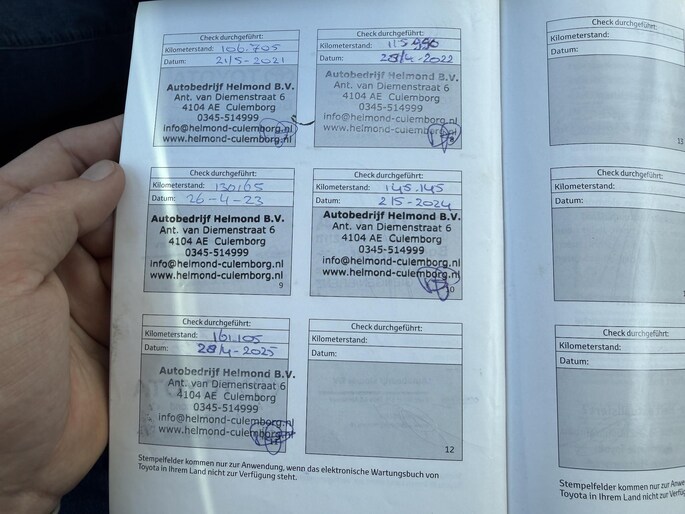 Check durchgeführt:
Kilometerstand: 106.705
Datum: 21/5-2021
Autobedrijf Helmond B.V.
Ant. van Diemenstraat 6
4104 AE Culemborg
0345-514999
info@helmond-culemborg.nl
www.helmond-culemborg.nl
Check durchgeführt:
Kilometerstand: 115.990
Datum: 28/4-2022
Autobedrijf Helmond B.V.
Ant. van Diemenstraat 6
4104 AE Culemborg
0345-514999
info@helmond-culemborg.nl
www.helmond-culemborg.nl
8
Check durchgeführt:
Kilometerstand: 130165
Datum: 26-4-23
Autobedrijf Helmond B.V.
Ant. van Diemenstraat 6
4104 AE Culemborg
0345-514999
info@helmond-culemborg.nl
www.helmond-culemborg.nl
9
Check durchgeführt:
Kilometerstand: 145.145
Datum: 2/5-2024
Autobedrijf Helmond B.V.
Ant. van Diemenstraat 6
4104 AE Culemborg
0345-514999
info@helmond-culemborg.nl
www.helmond-culemborg.nl
Check durchgeführt:
Kilometerstand: 161.105
Datum: 28/4-2025
Autobedrijf Helmond B.V.
Ant. van Diemenstraat 6
4104 AE Culemborg
0345-514999
info@helmond-culemborg.nl
www.helmond-culemborg.nl
Check durchgeführt:
Kilometerstand:
Datum:
12
Stempelfelder kommen nur zur Anwendung, wenn das elektronische Wartungsbuch von
Toyota in Ihrem Land nicht zur Verfügung steht.
Check durchgeführt:
Kilometerstand:
Datum:
13
Check durchgeführt:
Kilometerstand:
Datum:
Check durchgeführt:
Kilometerstand:
Datum:
Stempelfelder kommen nur zur
Toyota in Ihrem Land nicht zur